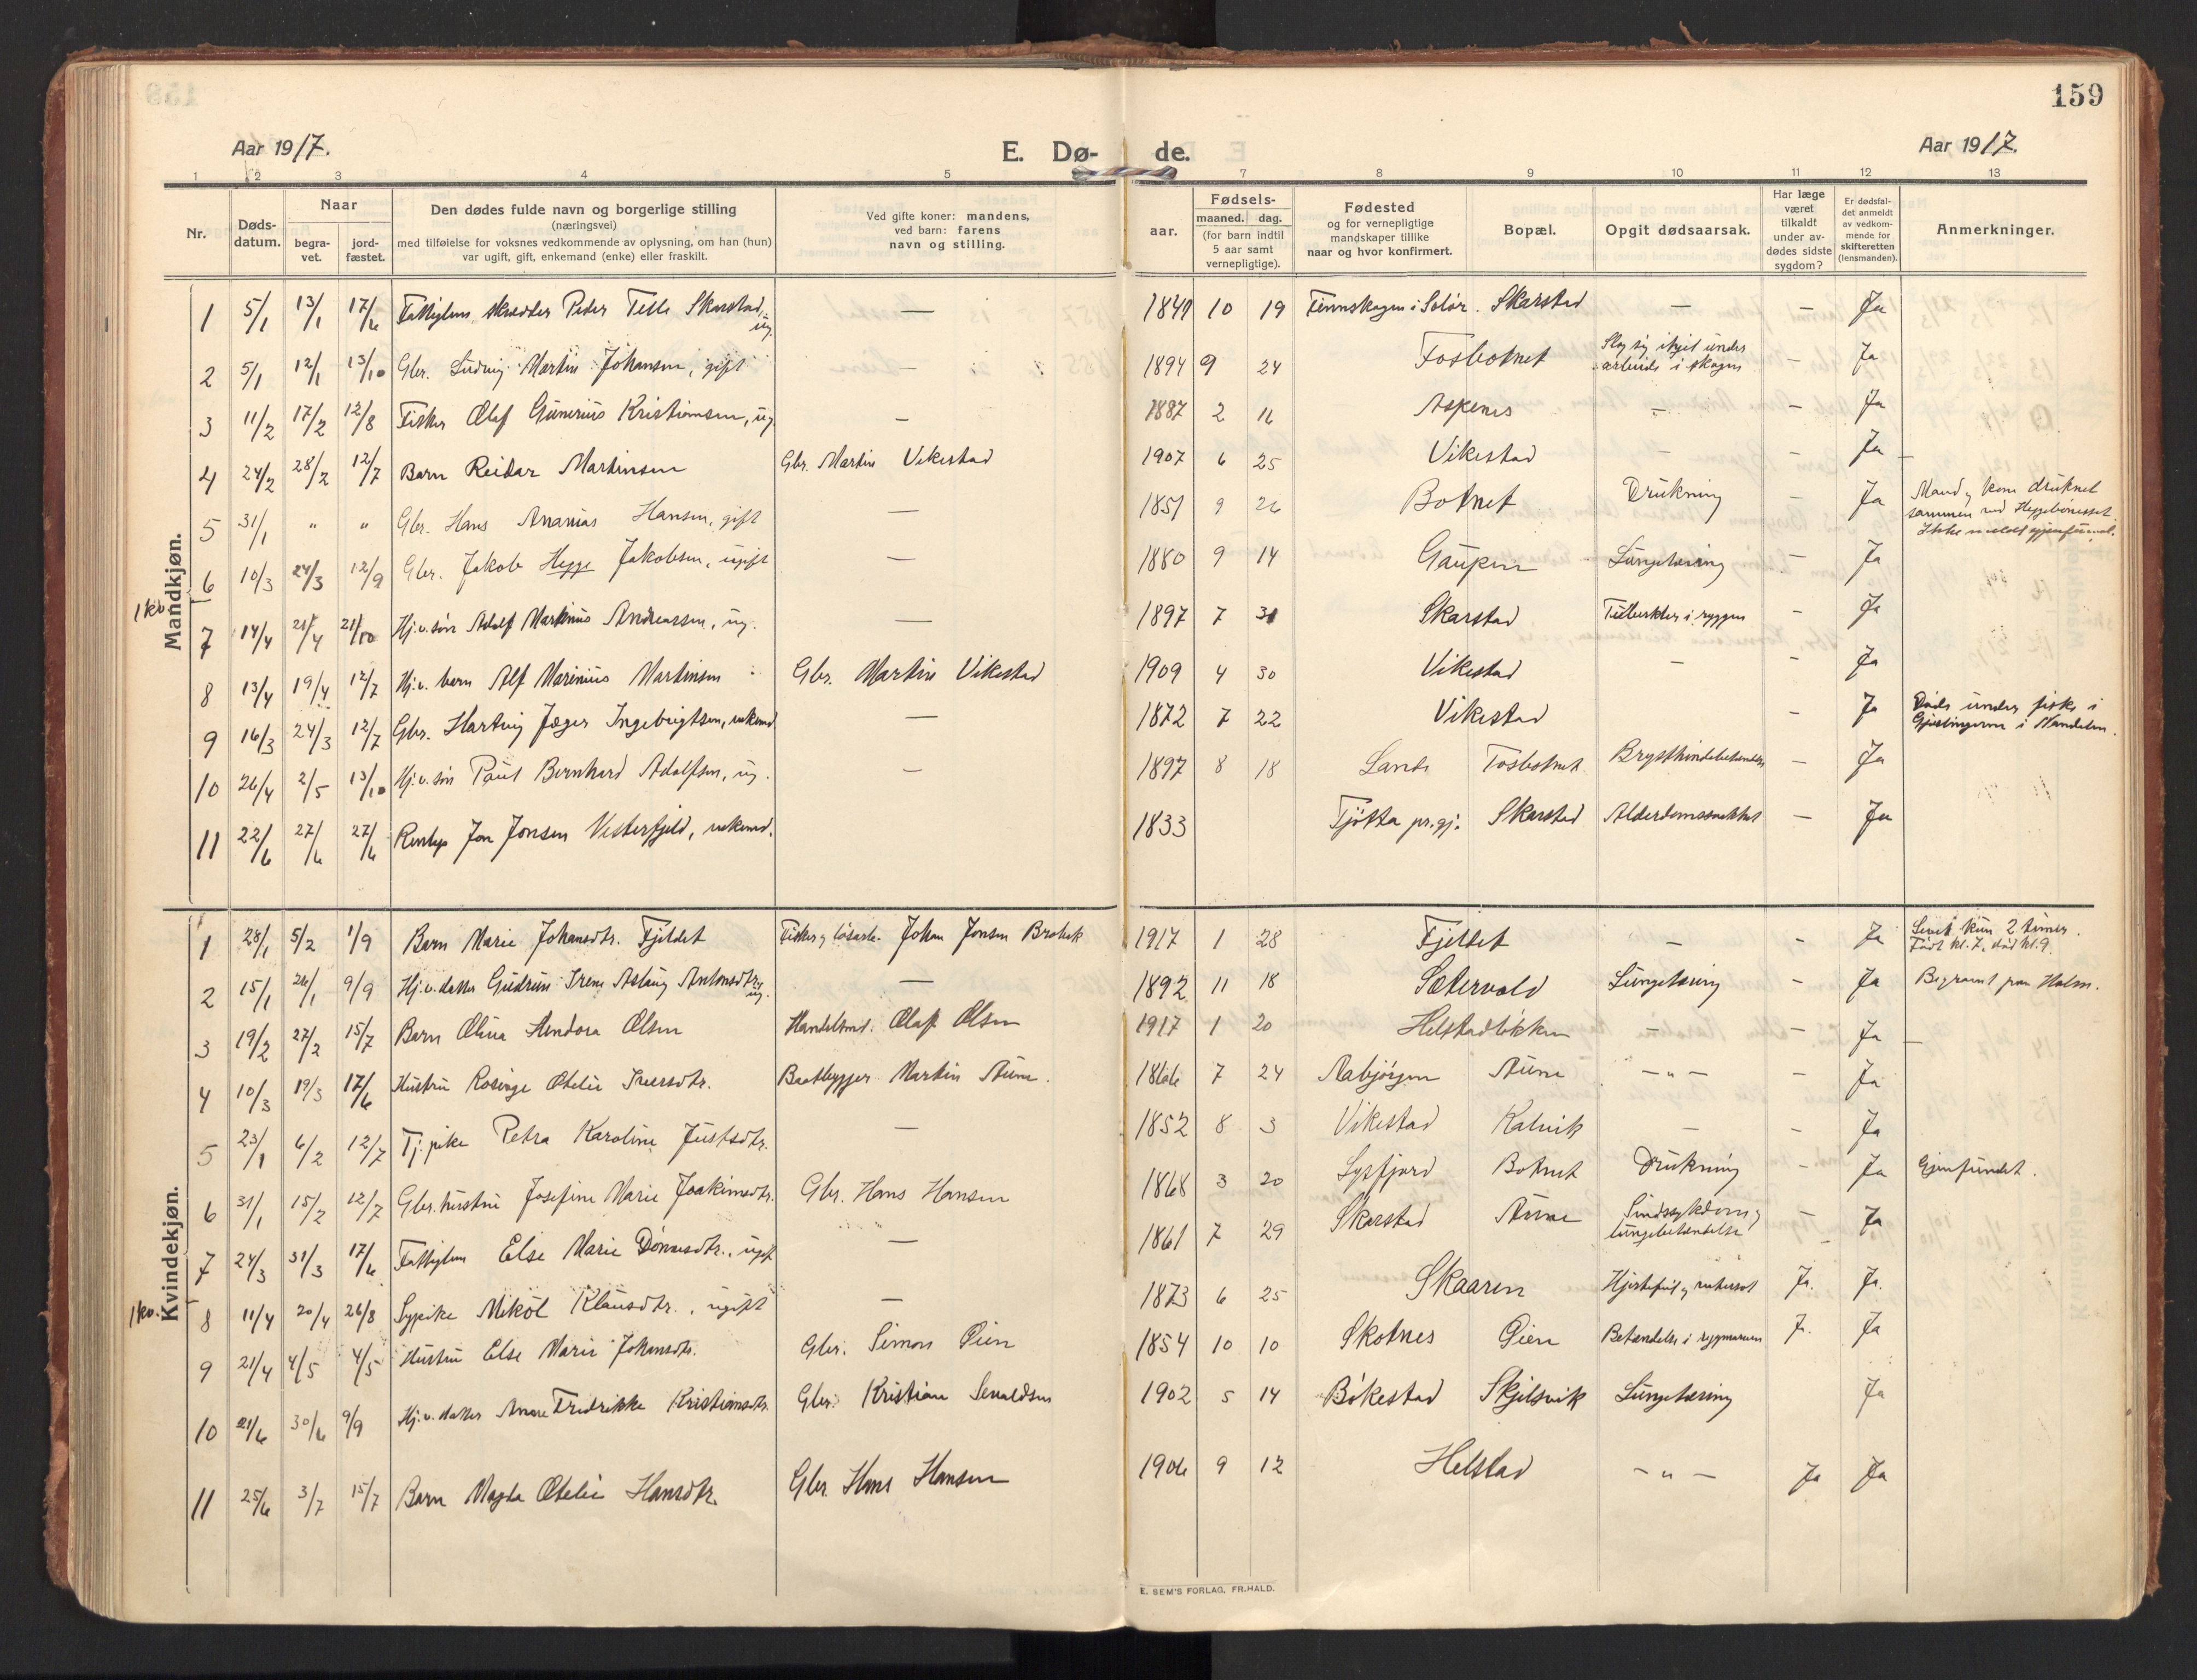 159
Aar 1917. E. Dø- de. Aar 1917.
1 2 3 4 5 7 8 9 10 11 12 13
Nr. Døds-datum. Naar begra-vet. jord-fæstet. Den dødes fulde navn og borgerlige stilling (næringsvei) med tilføielse for voksnes vedkommende av oplysning, om han (hun) var ugift, gift, enkemand (enke) eller fraskilt. Ved gifte koner: mandens, ved barn: farens navn og stilling. aar. Fødsels- maaned. dag. (for barn indtil 5 aar samt vernepligtige). Fødested og for vernepligtige mandskaper tillike naar og hvor konfirmert. Bopæl. Opgit dødsaarsak. Har læge været tilkaldt under av-dødes sidste sygdom? Er dødsfal-det anmeldt av vedkom-mende for skifteretten (lensmanden). Anmerkninger.
Mandkjøn.
1 5/1 13/1 17/6 Fattiglem, skrædder Peder Telle Skarstad, ug. — 10 19 Finnskogen i Solør. Skarstad — — Ja
2 5/1 12/1 13/10 Gbr. Ludvig Martin Johansen, gift 1894 9 24 Fosbotnet Slog sig ihjel under arbeide i skogen — Ja
3 11/2 17/2 12/8 Fisker Olaf Gunerius Kristiansen, ug — 1887 2 16 Aspenes — — Ja
4 24/2 28/2 12/7 Barn Reidar Martinsen Gbr. Martin Vikestad 1907 6 25 Vikestad — — Ja —
5 31/1 " " Gbr. Hans Ananias Hansen, gift — 1851 9 26 Botnet Drukning — Ja Mand og kone druknet sammen ved Heggebonesset. Ikke meldt gjenfunnet.
6 10/3 24/3 12/9 Gbr. Jakob Hegge Jakobsen, ugift — 1880 9 14 Gaupen Lungetæring — Ja
1 kv.
7 14/4 21/4 21/10 Hj.v. søn Adolf Markinus Andreassen, ug. — 1897 7 31 Skarstad Tuberkler i ryggen — Ja
8 13/4 19/4 12/7 Hj.v. barn Alf Marinius Martinsen Gbr. Martin Vikestad 1909 4 30 Vikestad — — Ja
9 16/3 24/3 12/7 Gbr. Hartvig Jæger Ingebrigtsen, enkemd. — 1872 7 22 Vikestad — Ja Døde under fiske i Gjæslingerne i Namdalen.
10 26/4 2/5 13/10 Hj.v. søn Paul Bernhard Adolfsen, ug. — 1897 8 18 Lande Fosbotnet Brysthindebetændelse — Ja
11 22/6 27/6 27/6 Jon Jonsen Vesterfjeld, enkemd. 1833 Tjøtta pr.gj. Skarstad Alderdomssvækket — Ja
Kvindekjøn.
1 28/1 5/2 1/9 Barn Marie Johansdtr. Fjeldet Fisker og løsarb. Johan Jonsen Brekk 1917 1 28 Fjeldet — — Ja Levet kun 2 timer. Født kl. 7, død kl. 9.
2 15/1 26/1 9/9 Hj.v. datter Gudrun Irene Aslaug Antonsdtr., ug. — 1892 11 18 Sætervold Lungetæring — Ja Begravet paa Holm.
3 19/2 27/2 15/7 Barn Olina Hendora Olsen Handelsmd. Olaf Olsen 1917 1 20 Helstadløkken — — Ja —
4 10/3 19/3 17/6 Hustru Rosinge Otelie Iversdtr. Baatbygger Martin Aune. 1866 7 24 Aabjørgen Aune — " — — Ja
5 23/1 6/2 12/7 Tj.pike Petra Karoline Justsdtr. — 1852 8 3 Vikestad Kalvik — — Ja
6 31/1 15/2 12/7 Gbr. hustru Josefine Marie Joakimsdtr. Gbr. Hans Hansen 1868 3 20 Lysfjord Botnet Drukning — Ja Gjenfundet.
7 24/3 31/3 17/6 Fattiglem Else Marie Dønnesdtr., ugift — 1861 7 29 Skarstad Aune Sindssykdom og lungebetændelse — Ja
1 kv.
8 11/4 20/4 26/8 Sypike Mikol Klausdtr., ugift — 1873 6 25 Skaaren Hjertefeil og vatersot Ja. Ja.
9 21/4 4/5 4/5 Hustru Else Marie Johansdtr. Gbr. Simon Øien 1854 10 10 Skotnes Øien Betændelse i rygmarven J. Ja
10 21/6 30/6 9/9 Hj.v. datter Anne Fredrikke Kristiansdtr. Gbr. Kristian Sevaldsen 1902 5 14 Bøkestad Skjelsvik Lungetæring Ja
11 25/6 3/7 15/7 Barn Magda Otelie Hansdtr. Gbr. Hans Hansen 1906 9 12 Helstad — " — Ja Ja
E. SEM'S FORLAG, FR.HALD.